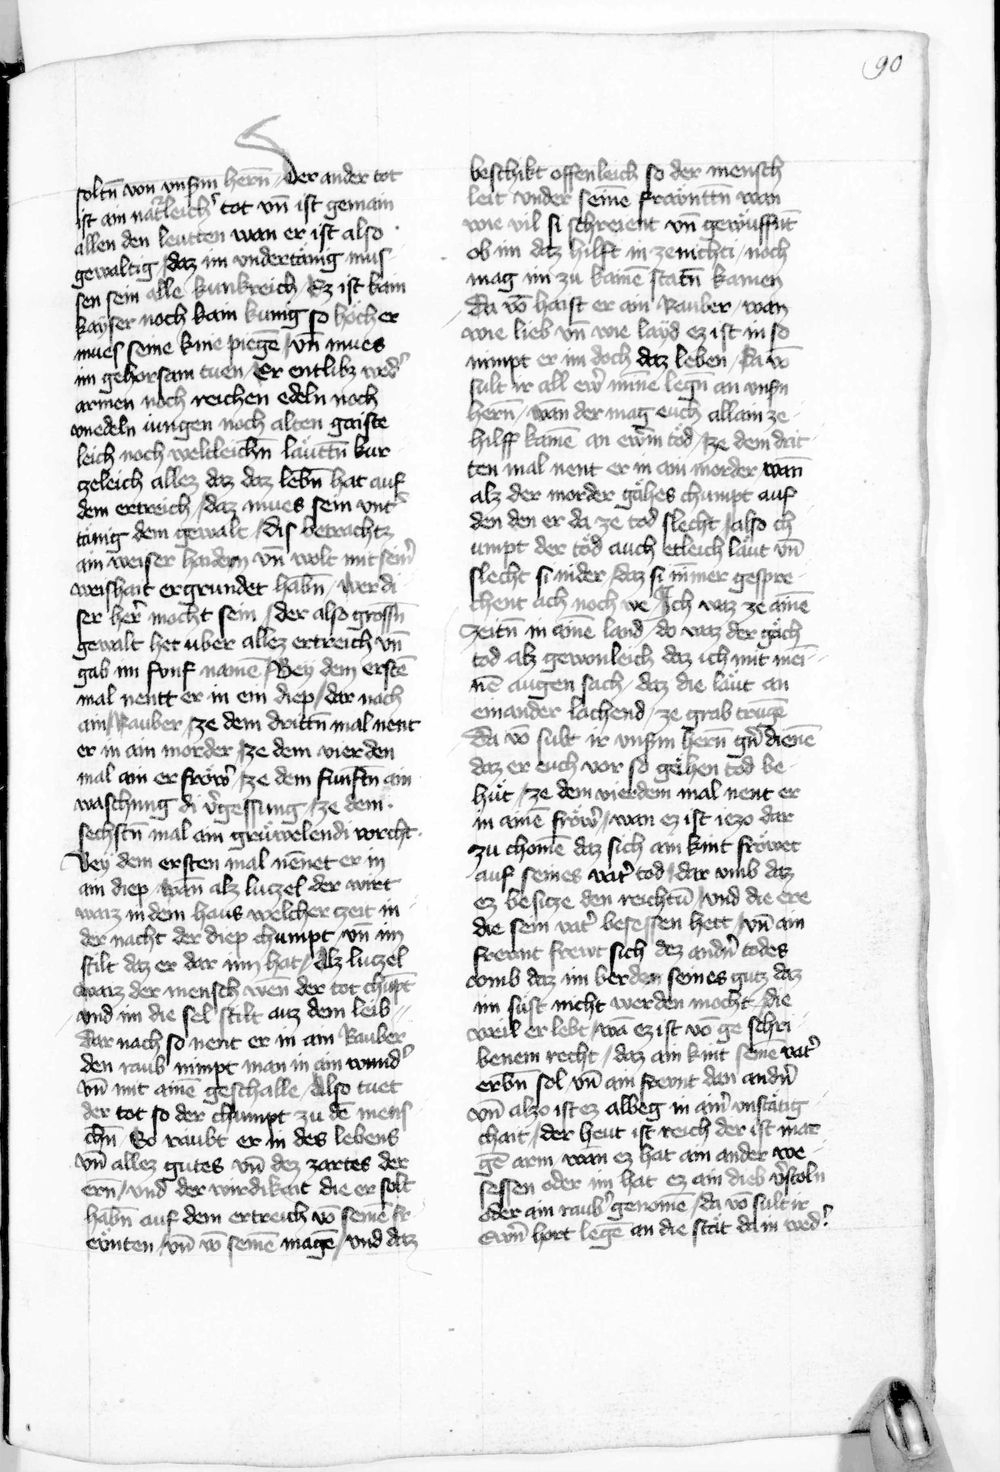 90
soltn̄ von vnſm̄ hern̄ / Der ander tot
iſt ain nat͛leich͛ tot vn̄ iſt gemain
allen den leutten wan er iſt alſo
gewaltig / daz im vndertänig muſ
ſen ſein alle kunkreich / Ez iſt kain
kayſer noch kain kunig ſo höch er
mues ſeine knie piegē / vn̄ mues
im gehorſam tuen / Er entlibz wed͛
armen noch reichen edeln noch
vnedeln iungen noch alten gaiſte
leich noch weltleichn̄ läuttn̄ kur
czeleich allez daz daz lebn̄ hat auf
dem ertreich / daz mues ſein vnt͛
tänig dem gewalt / Dis betrachtz
ain weiſer haiden vn̄ wolt mit ſein͛
weishait ergrundet habn̄ / wer di
ſer her͛ mocht ſein / der alſo groſſn̄
gewalt het uber allez ertreich vn̄
gab im funf namē / Bey dem erſtē
mal nentt er in ein diep / dar nach
ain / Rauber / ze dem drittn̄ mal nent
er in ain morder / ze dem vierden
mal ain erfröw͛ / ze dem funftn̄ ain
waſchung di v͛geſſung / ze dem
ſechſtn̄ mal ain gruwelendi vorcht
Bey dem erſten mal nēnet er in
ain diep / wan̄ alz luczel der wirt
waiz in dem haus welcher czeit in
der nacht der diep chumpt / vn̄ im
ſtilt daz er dar inn hat / Alz luczel
waiz der menſch wen der tot chūpt
vnd im die ſel ſtilt auz dem leib
Dar nach ſo nent er in ain Rauber
den raub nimpt man in ain wund͛
vn̄ mit ainē geſchalle / Alſo tuet
der tot ſo der chumpt zu de menſ
chn̄ So raubt er in des lebens
vn̄ allez gutes vn̄ dez zartes der
ern̄ / vnd der wirdikait die er ſolt
habn̄ auf dem ertreich vō ſeinē fr
eẅnten / vn̄ vō ſeinē magē / vnd daz
beſchikt offenleich ſo der menſch
leit vnder ſeinē fraẅnttn̄ wan
wie vil ſi ſchreient vn̄ gewuffnt̄
ob im daz hilft in ze nichti / noch
mag im zu kainē ſtatn̄ kamen
Da vō haiſt er ain Rauber / wan
wie lieb vn̄ wie layd ez iſt in ſo
nimpt er im doch daz leben / Da vō
ſult ir all ew͛ minne legn̄ an vnſn̄
hern̄ / wan der mag euch allain ze
hilff kamē an ewm̄ töd / ze dem drit
ten mal nent er in ain morder wan̄
alz der morder gähes chumpt auf
den den er da ze tod ſlecht / alſo ch
umpt der töd auch etleich läut vn̄
ſlecht ſi nider / daz ſi nīmer geſpre
chent ach noch we / Ich waz ze ainē
zeitn̄ in ainē land / do waz der gäch
tod alz gewonleich daz ich mit mei
nē augen ſach / daz die läut an
einander lachend / ze grab trugē
Da vō ſult ir vnſm̄ hern̄ gn̄ dienē
daz er euch vor ſo gähen tod be
hüt / ze dem vierdem mal nent er
in ainē fröw͛ / wan ez iſt iezo dar
zu chomē daz ſich ain kint fröwet
auf ſeines vat͛ tod / dar vmb daz
ez beſicze den reichtū / vnd die ere
die ſein vat͛ beſeſſen hett / vn̄ ain
freunt frewt ſich dez andn̄ todes
vomb daz im berden ſeines gutz daz
im ſuſt nicht werden mocht / die
weil er lebt / wā ez iſt vō ge ſchri
benem recht / daz ain kint ſeinē vat͛
erbn̄ ſol vn̄ ain freunt den andn̄
vn̄ alzo iſt ez albeg in ain͛ vnſtätig
chait / der heut iſt reich der iſt mar
gē arm / wan ez hat ain ander we
ſeſſen oder im hat ez ain dieb v͛ſtoln
oder ain raub͛ genomē / da vō ſult ir
ewrn̄ hort legē an die ſtät da in wed͛